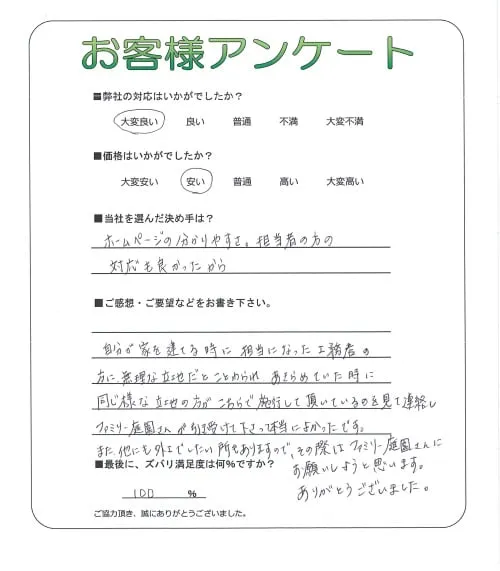 お客様アンケート
■弊社の対応はいかがでしたか？
大変良い 良い 普通 不満 大変不満
■価格はいかがでしたか？
大変安い 安い 普通 高い 大変高い
■当社を選んだ決め手は？
ホームページの分かりやすさ。担当者の方の
対応も良かったから
■ご感想・ご要望などをお書き下さい。
自分が家を建てる時に担当になった工務者の
方に無理な立地だとことわられ あきらめていた時に
同じ様な立地の方がこちらで施行して頂いているのを見て連絡し
ファミリー庭園さんが引き受けて下さって本当によかったです。
また、他にも外工でしたい所もありますので、その際はファミリー庭園さんに
お願いしようと思います。
ありがとうございました。
■最後に、ズバリ満足度は何%ですか？
100 %
ご協力頂き、誠にありがとうございました。